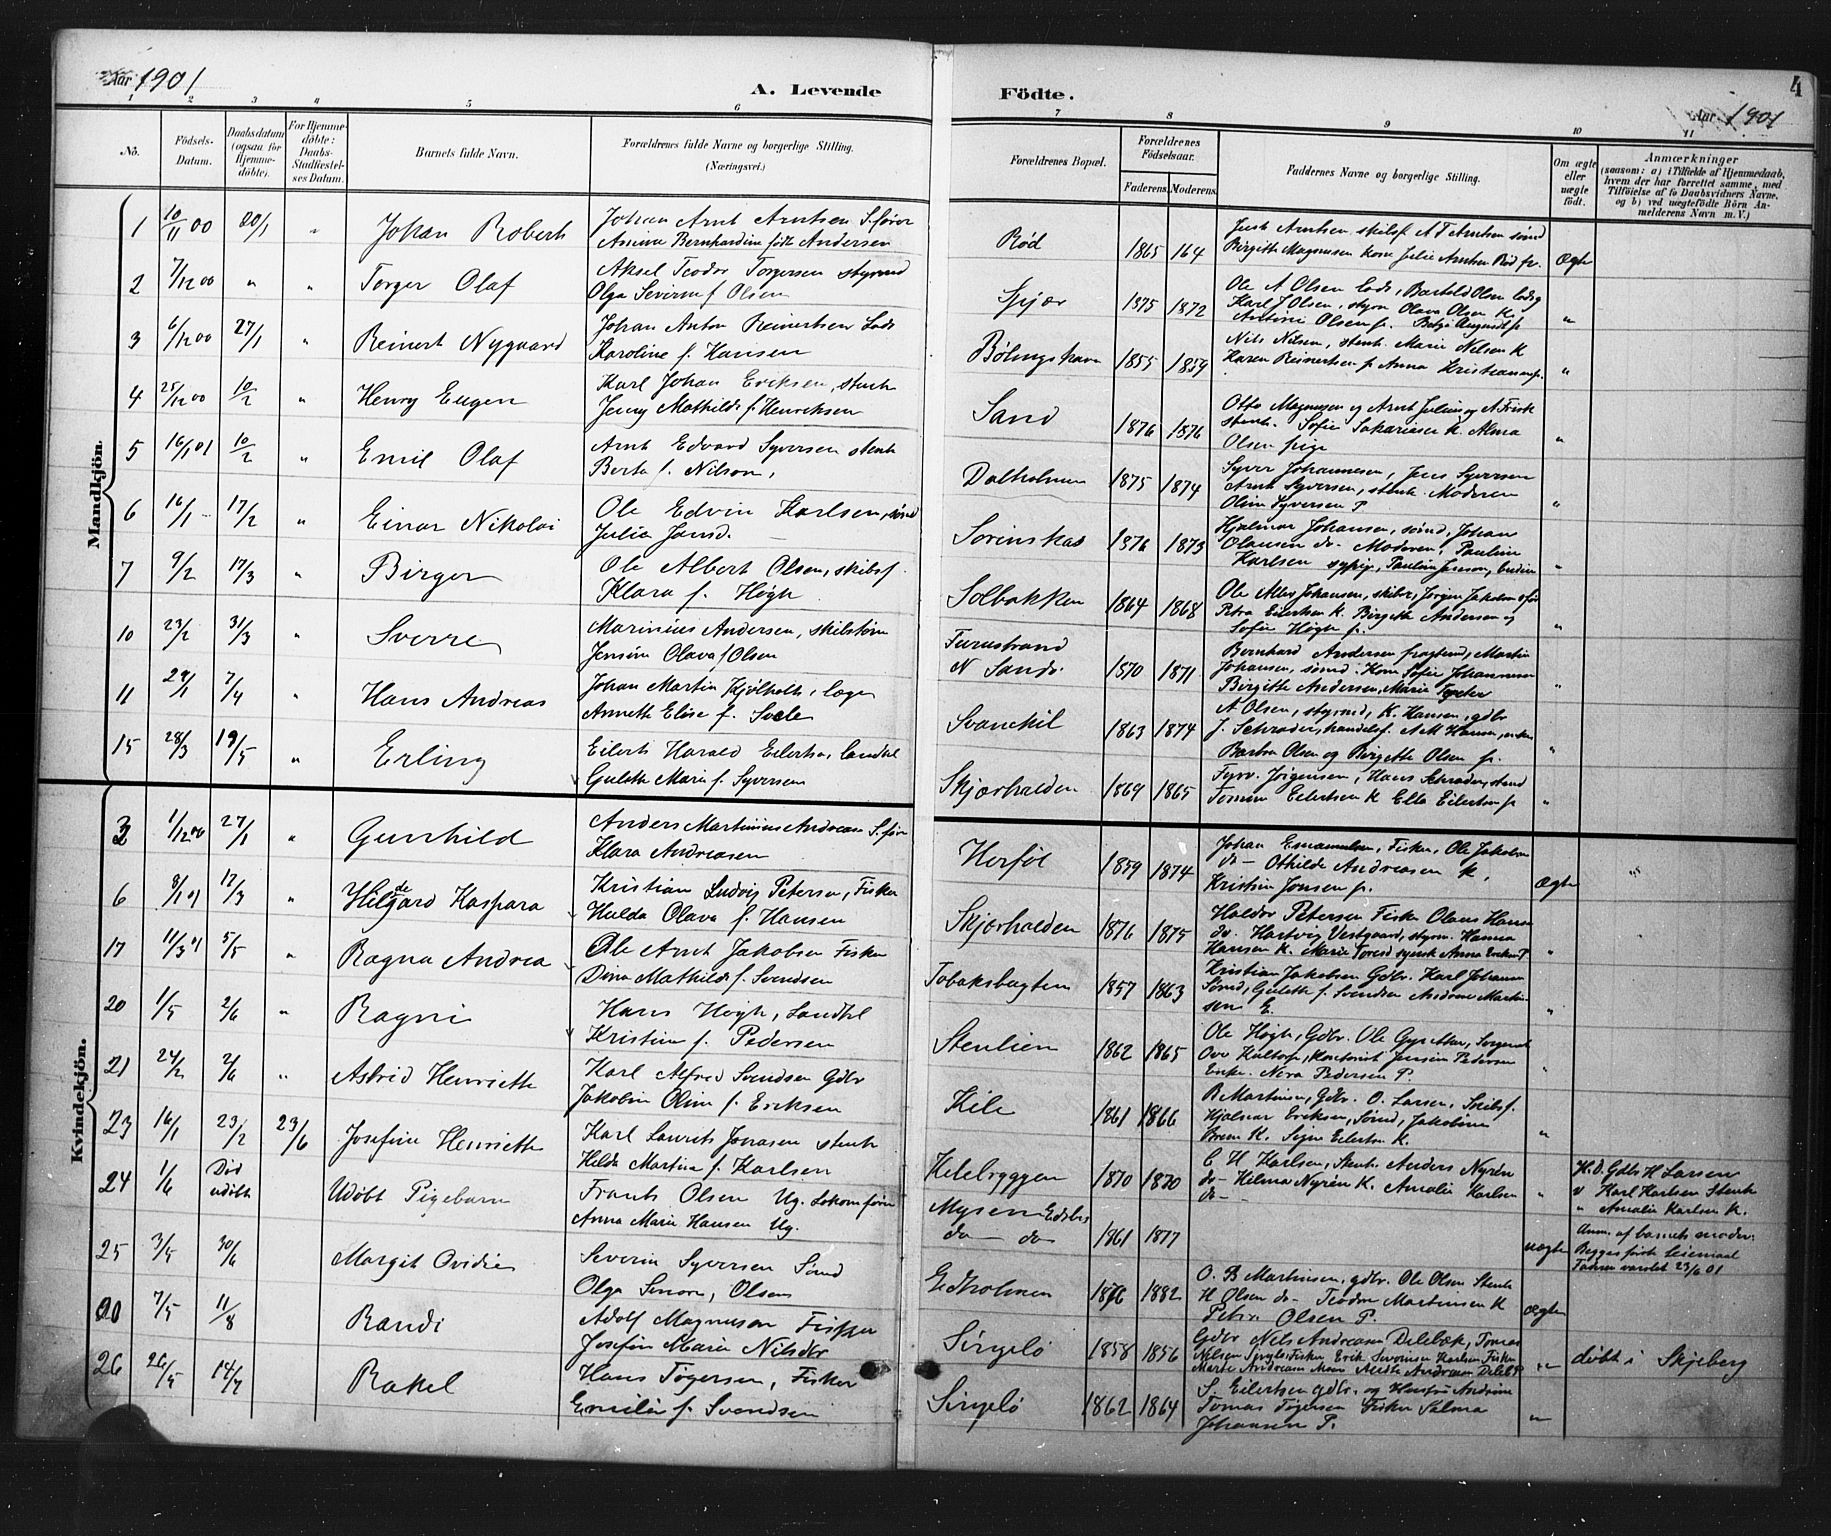 Aar 1901
A. Levende
Födte.
4
Aar 1901
1 2 3 4 5 6 7 8 9 10 11
No.
Födsels-Datum.
Daabsdatum (ogsaa for Hjemmedöbte).
For Hjemmedöbte: Daabs-Stadfæstelses Datum.
Barnets fulde Navn.
Forældrenes fulde Navne og borgerlige Stilling.
(Næringsvei.)
Forældrenes Bopæl.
Forældrenes Födselsaar.
Faderens. Moderens.
Faddernes Navne og borgerlige Stilling.
Om ægte eller uægte födt.
Anmærkninger
(saasom: a) i Tilfælde af Hjemmedaab, hvem der har forrettet samme, med Tilföielse af to Daabsvidners Navne, og b) ved uægtefödte Börn Anmelderens Navn m. V.)
Mandkjön.
1 10/11 00 20/1 " Johan Robert Johan Arnt Arntsen S.fører Rød 1865 164 Just Arntsen skibsf. A T Arntsen sømd
Amina Bernhardine født Andersen Birgitte Magnusen kone Julie Arntsen Rød p. Ægte
2 7/12 00 " " Torger Olaf Aksel Teodor Torgersen styrmd Spjær 1875 1872 Ole A Olsen lods, Bartold Olsen lods
Olga Severine f Olsen Karl J Olsen, styrm Olava Olsen K
Antini Olsen p. "
3 6/12 00 27/1 " Reinert Nygaard Johan Anton Reinertsen Lods Bølingshavn 1855 1859 Nils Nilsen, stenh. Marie Nilsen K
Karoline f. Hansen Karen Reinertsen p Anna Kristiansen p. "
4 25/12 00 10/2 " Henry Eugen Karl Johan Eriksen, stenh Sand 1876 1876 Otto Magnusen og Arnt Julius og A Frisk
Jenny Mathilde f. Henriksen stenh. Sofie Sakariasen K. Alma
Olsen pige "
5 16/1 01 10/2 " Emil Olaf Arnt Edvard Syversen stenh Dalholmen 1875 1874 Syver Johannesen, Jens Syversen
Berta f. Nilson, Arnt Syversen, stenh. Moderen
Olin Syversen P "
6 16/1 - 17/2 " Einar Nikolai Ole Edvin Karlsen, sømd 1876 1873 Hjalmar Johansen, sømd, Johan
Julia Jansd. Olausen do. Moderen, Pauline
Karlsen sypige, Paulin Jenson, "
7 9/2 17/3 " Birger Ole Albert Olsen, skibsf. Solbakken 1864 1868 Ole Johansen, skibsr, Jørgen Jakobsen
Klara f. Høgh Petra Eilertsen K. Birgitte Andersen og
Sofie Høgh p. "
10 23/2 31/3 " Sverre Marinius Andersen, skibstøm Furustrand 1870 1871 Bernhard Andersen fragtmd, Martin
Jensine Olava f Olsen N Sandø. Johansen, sømd. Kone Sofie Johannesen
Birgitte Andersen, Marie "
11 29/1 7/4 " Hans Andreas Johan Martin Kjølholt, læge Svanekil 1863 1874 A Olsen, styrmd, K. Hansen, gdbr
Annette Elise f. J. Schrader handelsf. A M Hansen, enke
Barbra Olsen og Birgitte Olsen p. "
15 28/3 19/5 " Erling Eilert Harald Eilertsen, landhd Skjærhalden 1869 1865 Fyrv. Jørgensen, Hans Schrader, stud
Gulette Marie f. Syversen Tomine Eilertsen K Ella Eilertsen p "
Kvindekjön.
3 1/12 00 27/1 " Gunhild Anders Martinius Andreasen S.fører Herføl 1859 1874 Johan Emanuelsen, Fisker, Ole Jakobsen
Klara Andreasen do - Othilde Andreasen K,
Kristin Jonsen p. Ægte "
6 9/1 01 17/3 " Hildegard Kaspara Kristian Ludvig Petersen, Fisker Skjærhalden 1876 1875 Haldor Petersen Fisker Olaus Hansen
Hulda Olava f. Hansen do. Hartvig Vestgaard, styrm. Hanna
Hansen K. Marie Anna Eriksen P "
17 11/3 01 5/5 " Ragna Andrea Ole Arnt Jakobsen Fisker Tobaksbugten 1857 1863 Kristian Jakobsen Gdbr. Karl Johansen
Dina Mathilde f. Svendsen Sømd, Gulette f. Svendsen Andrine Martin
sen E. "
20 1/5 2/6 " Ragni Hans Høgh, Landhdl Stenlien 1862 1865 Ole Høgh, Gdbr.
Kristine f. Pedersen Kontorist Jensin Pedersen
Enke. Nora Pedersen P. "
21 24/2 2/6 " Astrid Henriette Karl Alfred Svendsen Gdbr Kile 1861 1866 B Martinsen, Gdbr. O. Larsen, Skibsf.
Jakobin Oline f. Eriksen Hjalmar Eriksen, Sømd, Jakobine
K. Signe Eilertsen K. "
23 16/1 23/2 23/6 Josefine Henriette Karl Laurits Jonasen stenh Kilebryggen 1870 1870 C H Karlsen, Stenh. Anders Nyrén
Hilda Martina f. Karlsen do - Helma Nyrén K. Amalie Karlsen
do - " H. D. Gdbr H Larsen
v Karl Karlsen Stenh
" Amalie Karlsen K.
24 1/6 Död udöbt Udöbt Pigebarn Frants Olsen Ug. Lokomfører Mysen Edsbg 1861 1877
Anna Marie Hansen Ug. do - do uægte Anm. af barnets moder.
Begges første Leiermaal
Faderen varslet 23/6 01
25 3/5 30/6 Margit Ovidie Severin Syversen Sømd Edholmen 1876 1882 O. B Martinsen, gdbr. Ole Olsen Stenh
Olga Olsen H Olsen do - Teodor Martinsen K
Petra Olsen P. ægte
20 7/5 11/8 Randi Adolf Magnusen Fisker Singelö 1858 1856 Gdbr Nils Andreasen Dilebæk, Tomas
Josefin Marie Nilsdtr Nilsen Singlø Fisker Erik Severinsen Karlsen Fisker
" döbt i Skjeberg
26 26/5 14/7 Rakel Hans Tøgersen, Fisker Singelö 1862 1864 S. Eilertsen gdbr. og Hustru Andrine
Emilie f. Svendsen Tomas Tøgersen Fisker Salma
Johansen P. "